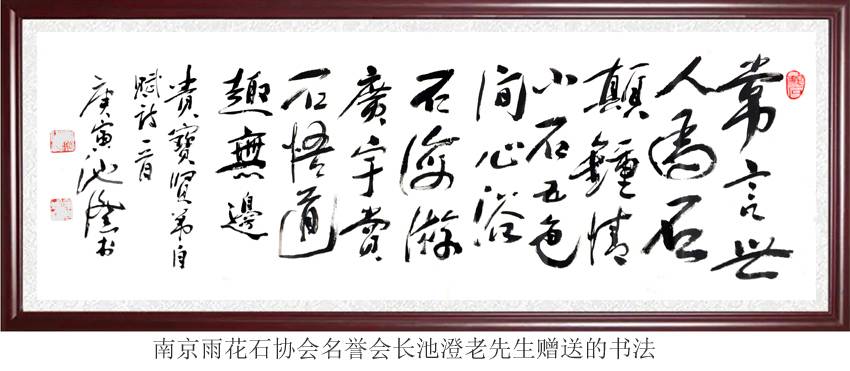 常言世
人為石
顛鍾情
小石五色
间心浴
石海游
廣宇賞
石悟道
趣無邊
貴寶賢弟自
賦诗一首
庚寅池澄书
南京雨花石协会名誉会长池澄老先生赠送的书法